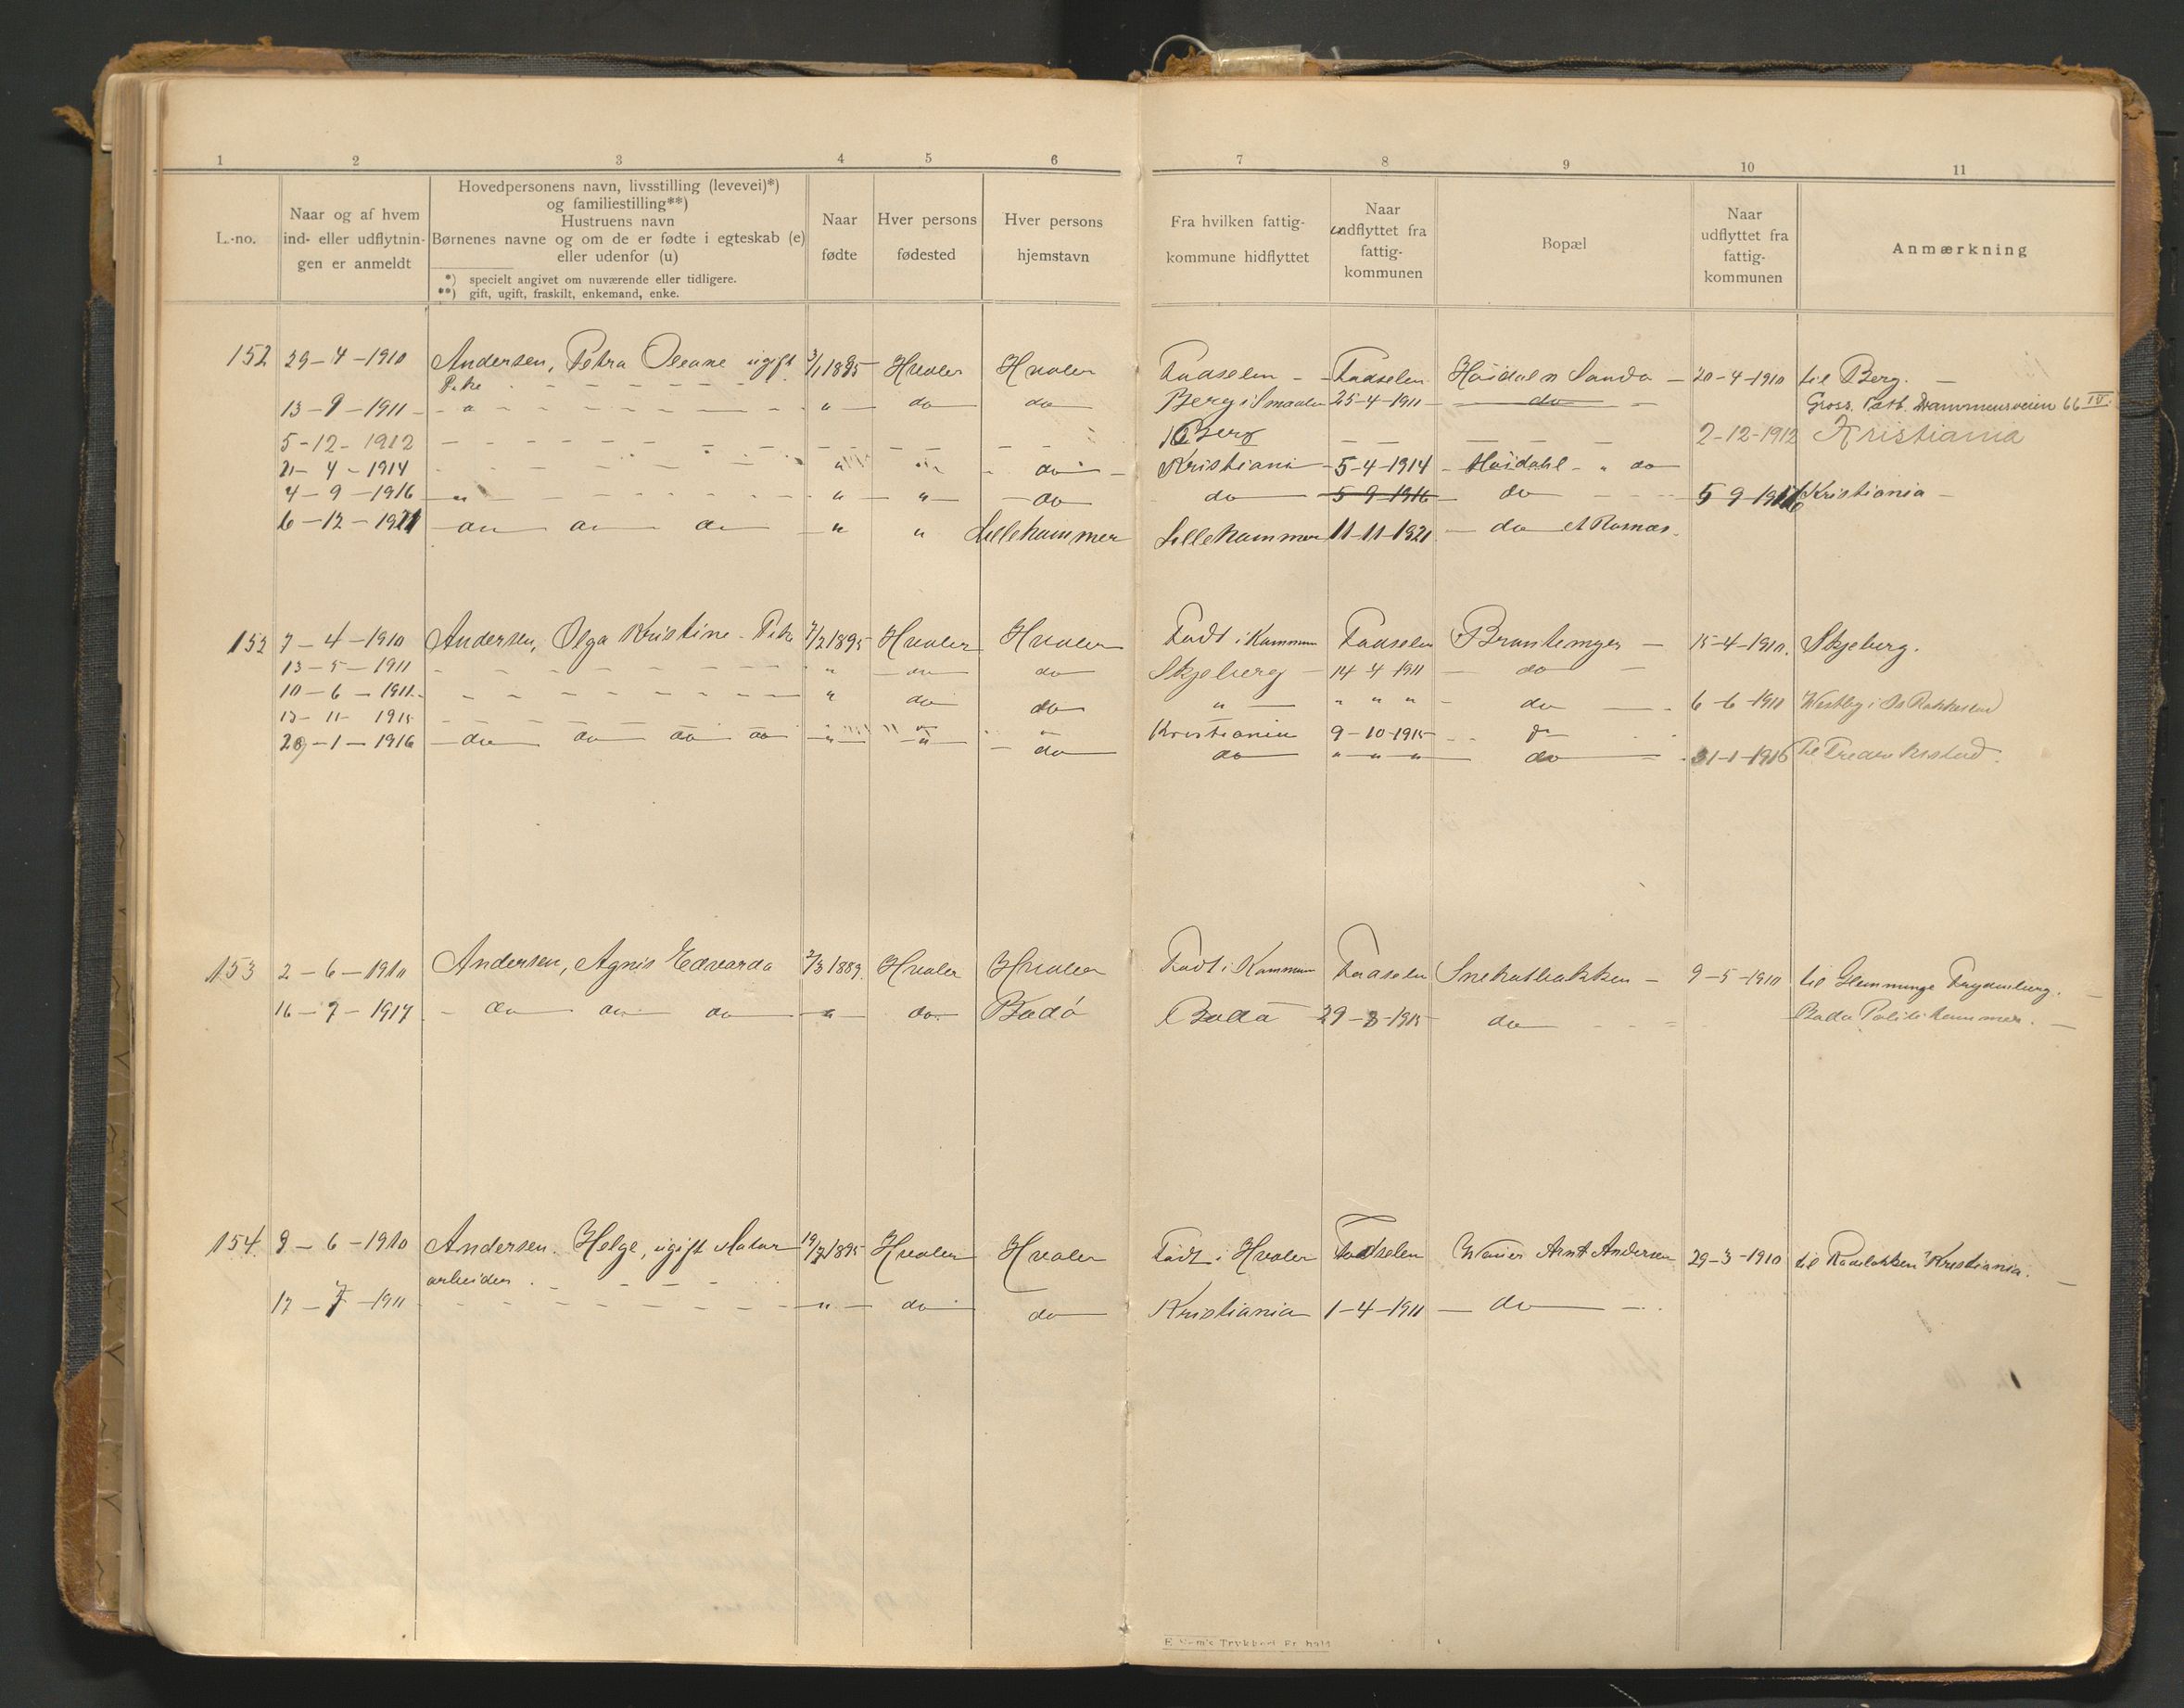 1 2 3 4 5 6 7 8 9 10 11
L.-no.
Naar og af hvem
ind- eller udflytnin-
gen er anmeldt
Hovedpersonens navn, livsstilling (levevei)*)
og familiestilling**)
Hustruens navn
Børnenes navne og om de er fødte i egteskab (e)
eller udenfor (u)
*) specielt angivet om nuværende eller tidligere.
**) gift, ugift, fraskilt, enkemand, enke.
Naar
fødte
Hver persons
fødested
Hver persons
hjemstavn
Fra hvilken fattig-
kommune hidflyttet
Naar
indflyttet fra
fattig-
kommunen
Bopæl
Naar
udflyttet fra
fattig-
kommunen
Anmærkning
152 29-4-1910 Andersen, Petra Oleane ugift 3/1 1895 Hvaler Hvaler Fødselen - Fødselen Høidal n Sando - 20-4-1910 til Berg. -
Pike
13-9-1911 - " - " - do do Berg i Smaalen 25-4-1911 - do - Gross. Drammensveien 66 IV
5-12-1912 - - - Berg - - - 2-12-1912 Kristiania
21-4-1914 - " " - do - Kristiania - 5-4-1914 - Høidahl - " do
4-9-1916 - " - " - " - do do 5-9-1916 - do - 5-9-1916 Kristiania -
6-12-1921 - do do do - " " Lillehammer Lillehammer 11-11-1921 - do
152 7-4-1910 Andersen, Olga Kristine. Pike 7/2 1895 Hvaler Hvaler Født i Kommun Fødselen Brantenger - 15-4-1910. Skjeberg.
13-5-1911 - - - " - do do Skjeberg - 14-4-1911 - do -
10-6-1911. - - - " do do " - " " " - do - 6-6-1911
13-11-1915 - - - Kristiania 9-10-1915 - do
29-1-1916 - do do do do - " - " - do do " " " do - 31-1-1916 til Fredrikstad.
153 2-6-1910 Andersen, Agnis Edvarda 2/3 1889. Hvaler Hvaler Født i Kommun Fødselen Snekatbakken - 9-5-1910 til Glemminge Frydenberg. -
16-7-1917 - do do do - " - do Bodø Bodø 29-8-1915 do - Bodø Politikammer. -
154. 9-6-1910 Andersen. Helge, ugift Motor 19/7 1895 Hvaler Hvaler Født i Hvaler Fødselen Arnt Andersen 29-3-1910 til Rodeløkken Kristiania. -
arbeider. - - -
17-7-1911 - - - " - do do Kristiania 1-4-1911 - do -